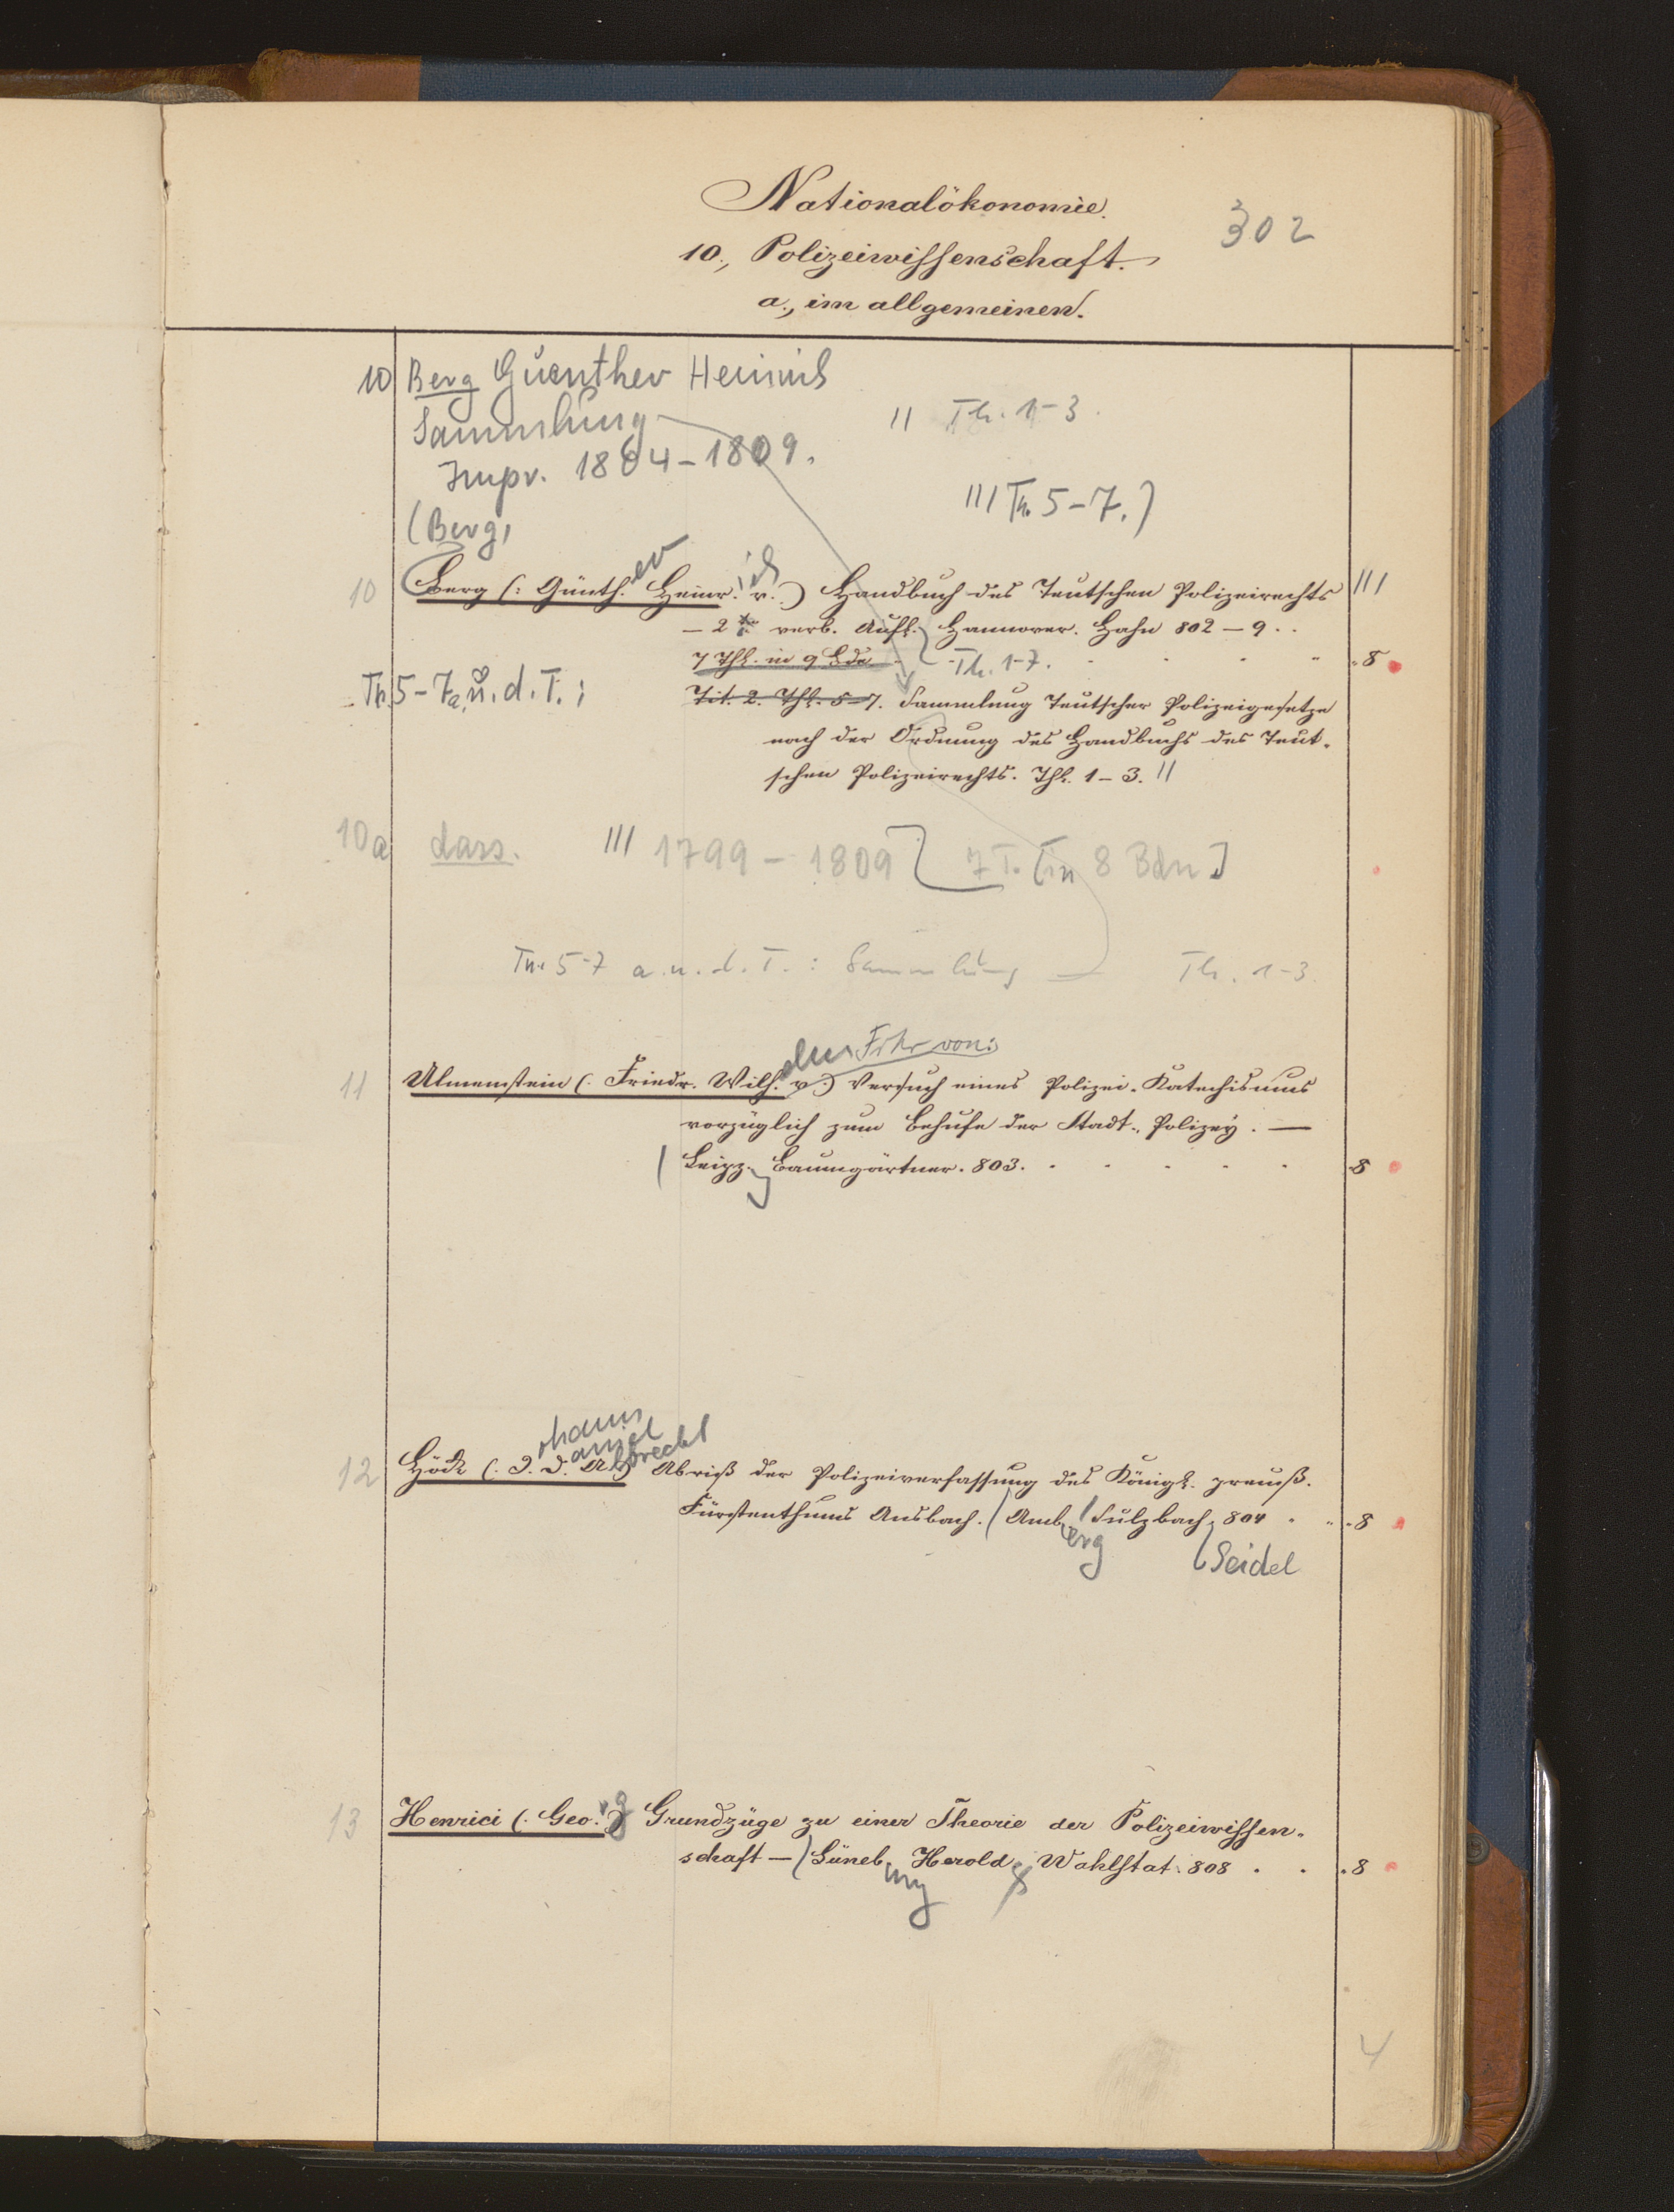 Nationalökonomie.
302
10., Polizeiwissenschaft.
a., im allgemeinen.
10 Berg Guenther Heinrich
Sammlung — II Th. 1-3.
Impr. 1804-1809.
III Th. 5-7.)
(Berg,
10 Berg (: Günth.er Heinr.ich v.) Handbuch des Teutschen Polizeirechts III
— 2te verb. Aufl. Hannover. Hahn 802 — 9 . .
7 Thl. in 9 Bde Th. 1-7. . 8
Th. 5-7 a. u. d. T.: Tit. 2. Thl. 5-7. Sammlung Teutscher Polizeigesetze
nach der Ordnung des Handbuchs des Teut-
schen Polizeirechts. Thl. 1-3. II
10a dass. III 1799 - 1809 7 T. [in 8 Bdn]
Th. 5-7 a. u. d. T.: Sammlung — Th. 1-3.
Frhr von:
11 Ulmenstein (: Friedr. Wilh. v.) Versuch eines Polizei-Katechismus
vorzüglich zum Behufe der Stadt-Polizey. —
Leipz. Baumgärtner. 803. . . . . . 8
ohann
aniel
lbrecht
12 Höck (: J. D. A.) Abriß der Polizeiverfassung des Königl. preuß.
Fürstenthums Ansbach. Amb. Sulzbach, 804 . . 8
erg
Seidel
13 Henrici (: Geo.rg) Grundzüge zu einer Theorie der Polizeiwissen-
schaft — Lüneb. Herold & Wahlstat. 808 . . . 8
urg
4